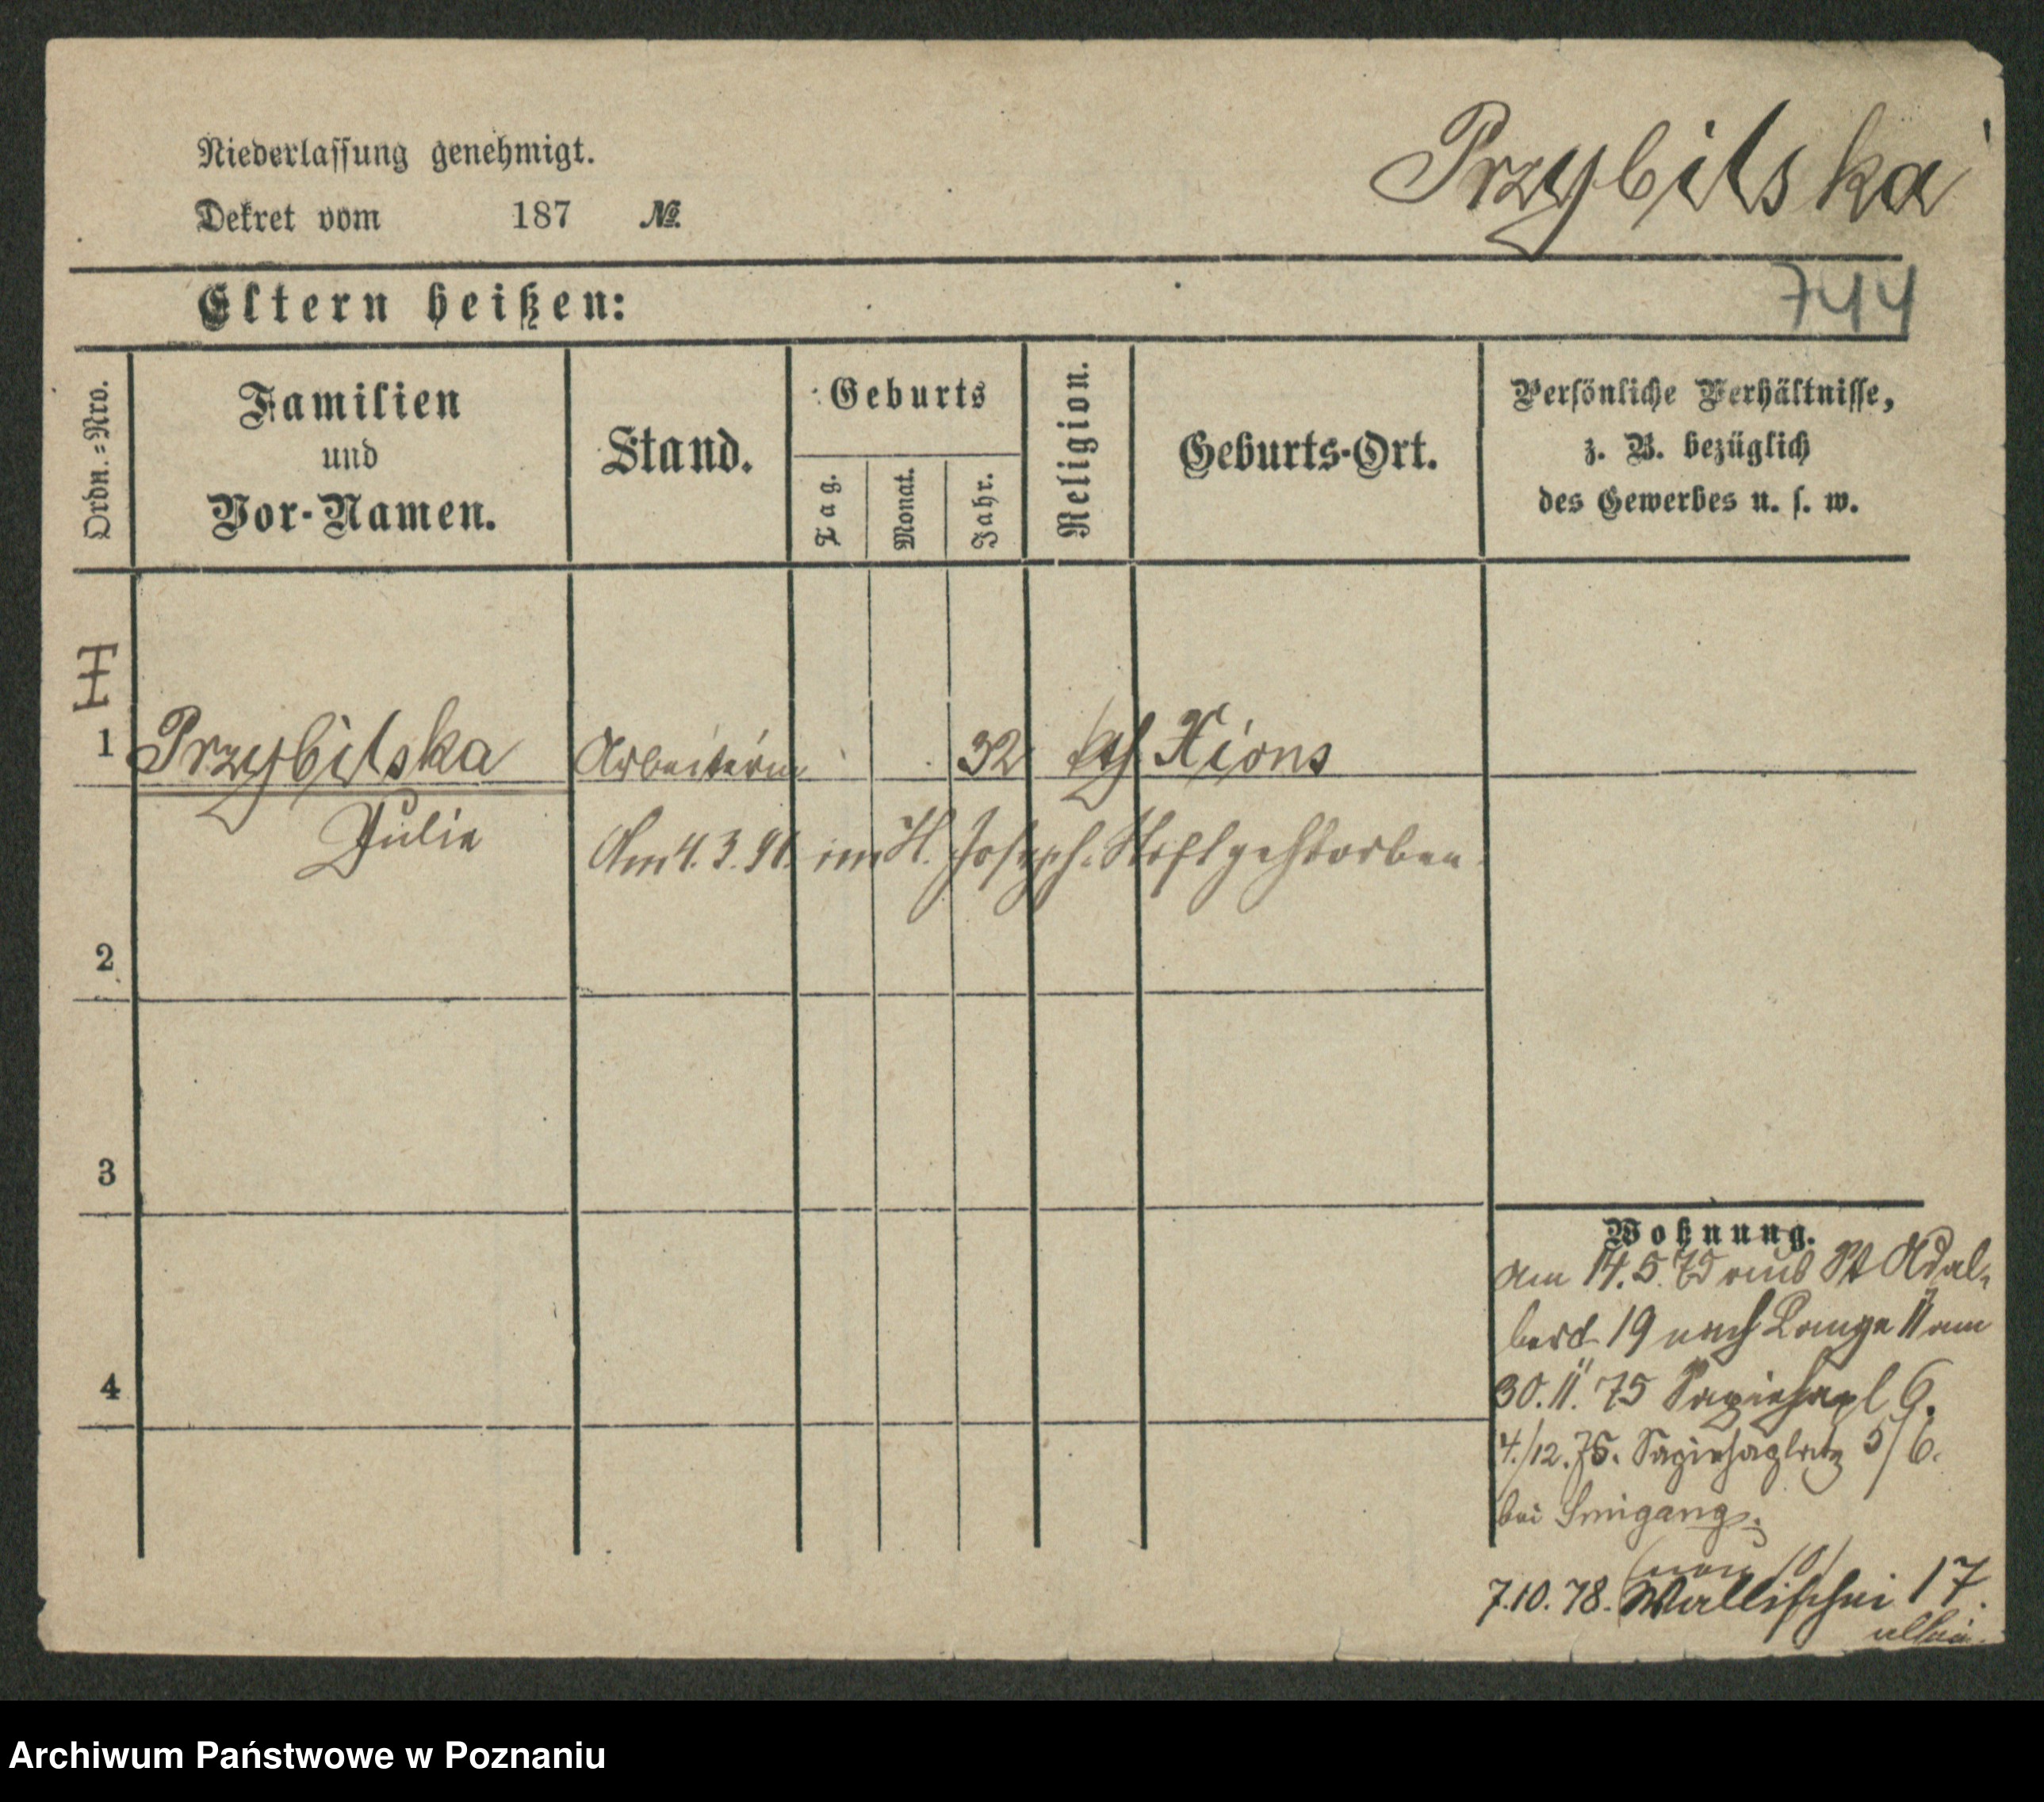 Niederlassung genehmigt.
Dekret vom 187 №
Przybilska
Eltern heißen:
744
Ordn.=Nro.
Familien
und
Vor-Namen.
Stand.
Geburts
Tag.
Monat.
Jahr.
Religion.
Geburts-Ort.
Persönliche Verhältnisse,
z. B. bezüglich
des Gewerbes u. s. w.
1 Przybilska Arbeiterin 32 kth Xions
Julie
Am 4. 3. 91. im St. Joseph-Stift gestorben.
2
3
4
Wohnung.
Am 14.5.75 aus St Adal-
berd 19 nach Lange 11 am
30.11.75 Sapiehapl 6.
4./12.75. Sapiehaplatz 5/6.
bei
7.10.78. Wallischei 17.